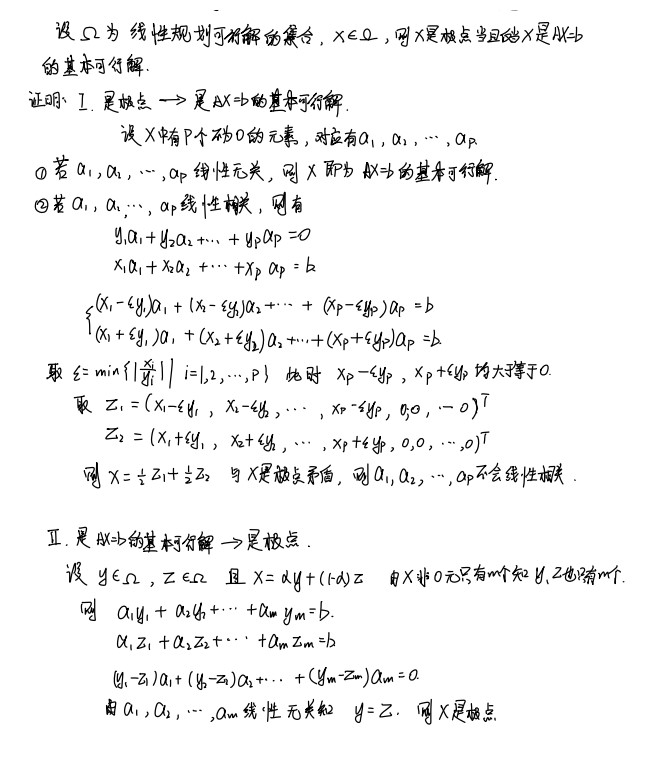 设Ω为线性规划可行解的集合，X∈Ω，则X是极点当且仅当X是AX=b
的基本可行解.
证明: I. 是极点 → 是AX=b的基本可行解.
设X中有P个不为0的元素，对应有a₁, a₂, ⋯, aₚ.
①若a₁, a₂, ⋯, aₚ线性无关，则X即为AX=b的基本可行解.
②若a₁, a₂, ⋯, aₚ线性相关，则有
y₁a₁+y₂a₂+⋯+yₚaₚ=0
x₁a₁+x₂a₂+⋯+xₚaₚ=b
{(x₁-εy₁)a₁+(x₂-εy₂)a₂+⋯+(xₚ-εyₚ)aₚ=b
(x₁+εy₁)a₁+(x₂+εy₂)a₂+⋯+(xₚ+εyₚ)aₚ=b.
取 ε=min{|xᵢ/yᵢ| | i=1,2,…,p} 此时 xₚ-εyₚ, xₚ+εyₚ均大于等于0.
取 Z₁=(x₁-εy₁, x₂-εy₂, ⋯, xₚ-εyₚ, 0,0, ⋯0)ᵀ
Z₂=(x₁+εy₁, x₂+εy₂, ⋯, xₚ+εyₚ, 0,0, ⋯,0)ᵀ
则X=½Z₁+½Z₂ 与X是极点矛盾，则a₁, a₂, ⋯, aₚ不会线性相关.
II. 是AX=b的基本可行解→是极点.
设 y∈Ω, Z∈Ω 且 X=αy+(1-α)Z 由X非0元只有m个知y, Z也只有m个.
则 a₁y₁+a₂y₂+⋯+aₘyₘ=b.
a₁z₁+a₂z₂+⋯+aₘzₘ=b
(y₁-z₁)a₁+(y₂-z₂)a₂+⋯+(yₘ-zₘ)aₘ=0.
由a₁, a₂, ⋯, aₘ线性无关知 y=Z. 则X是极点